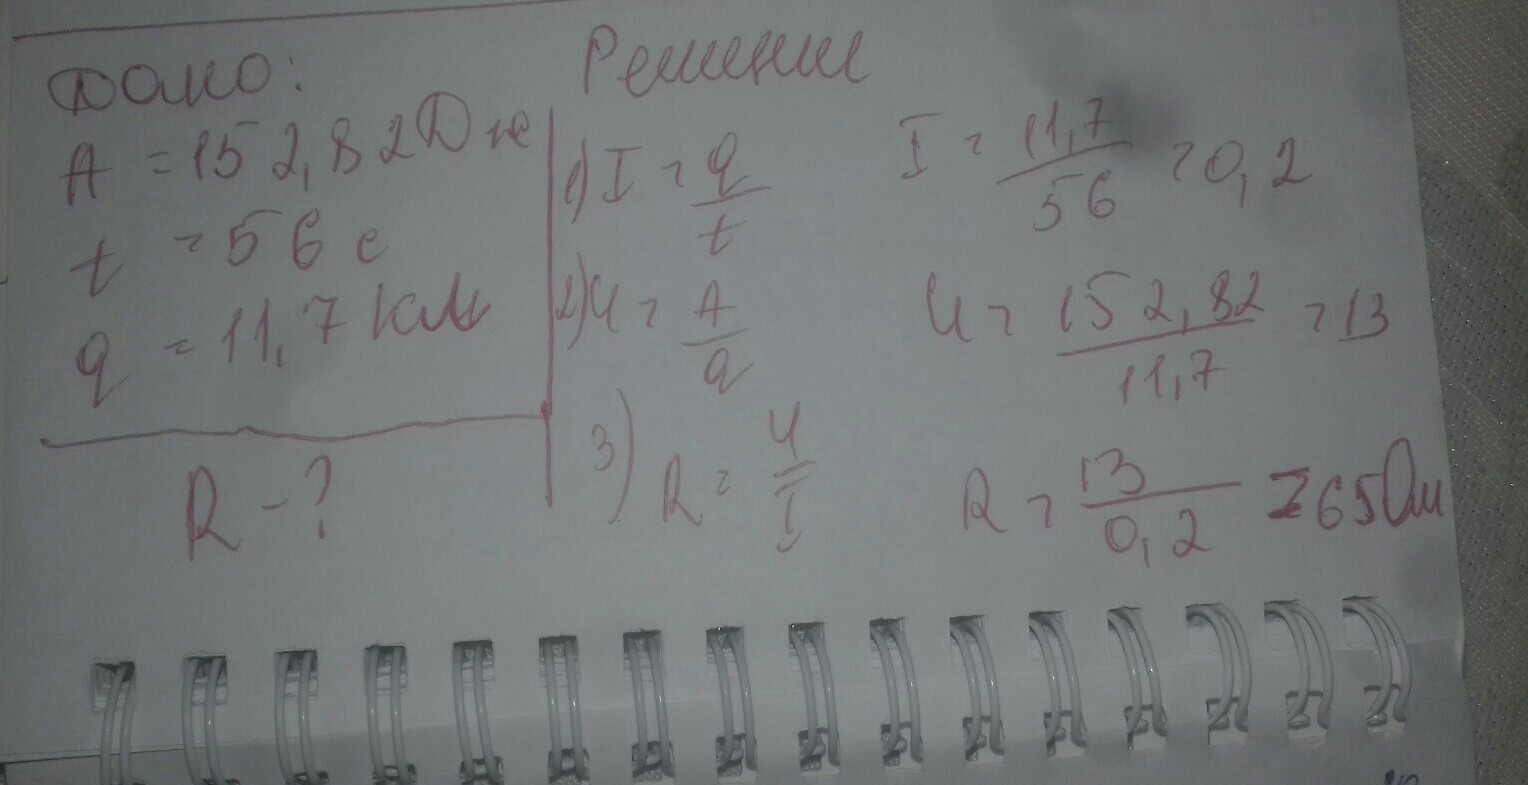 Дано:
A = 152,82 Дж
t = 56 с
q = 11,7 Кл
R - ?
Решение
1) I = q/t I = 11,7/56 = 0,2
2) U = A/q U = 152,82/11,7 = 13
3) R = U/I R = 13/0,2 = 65 Ом